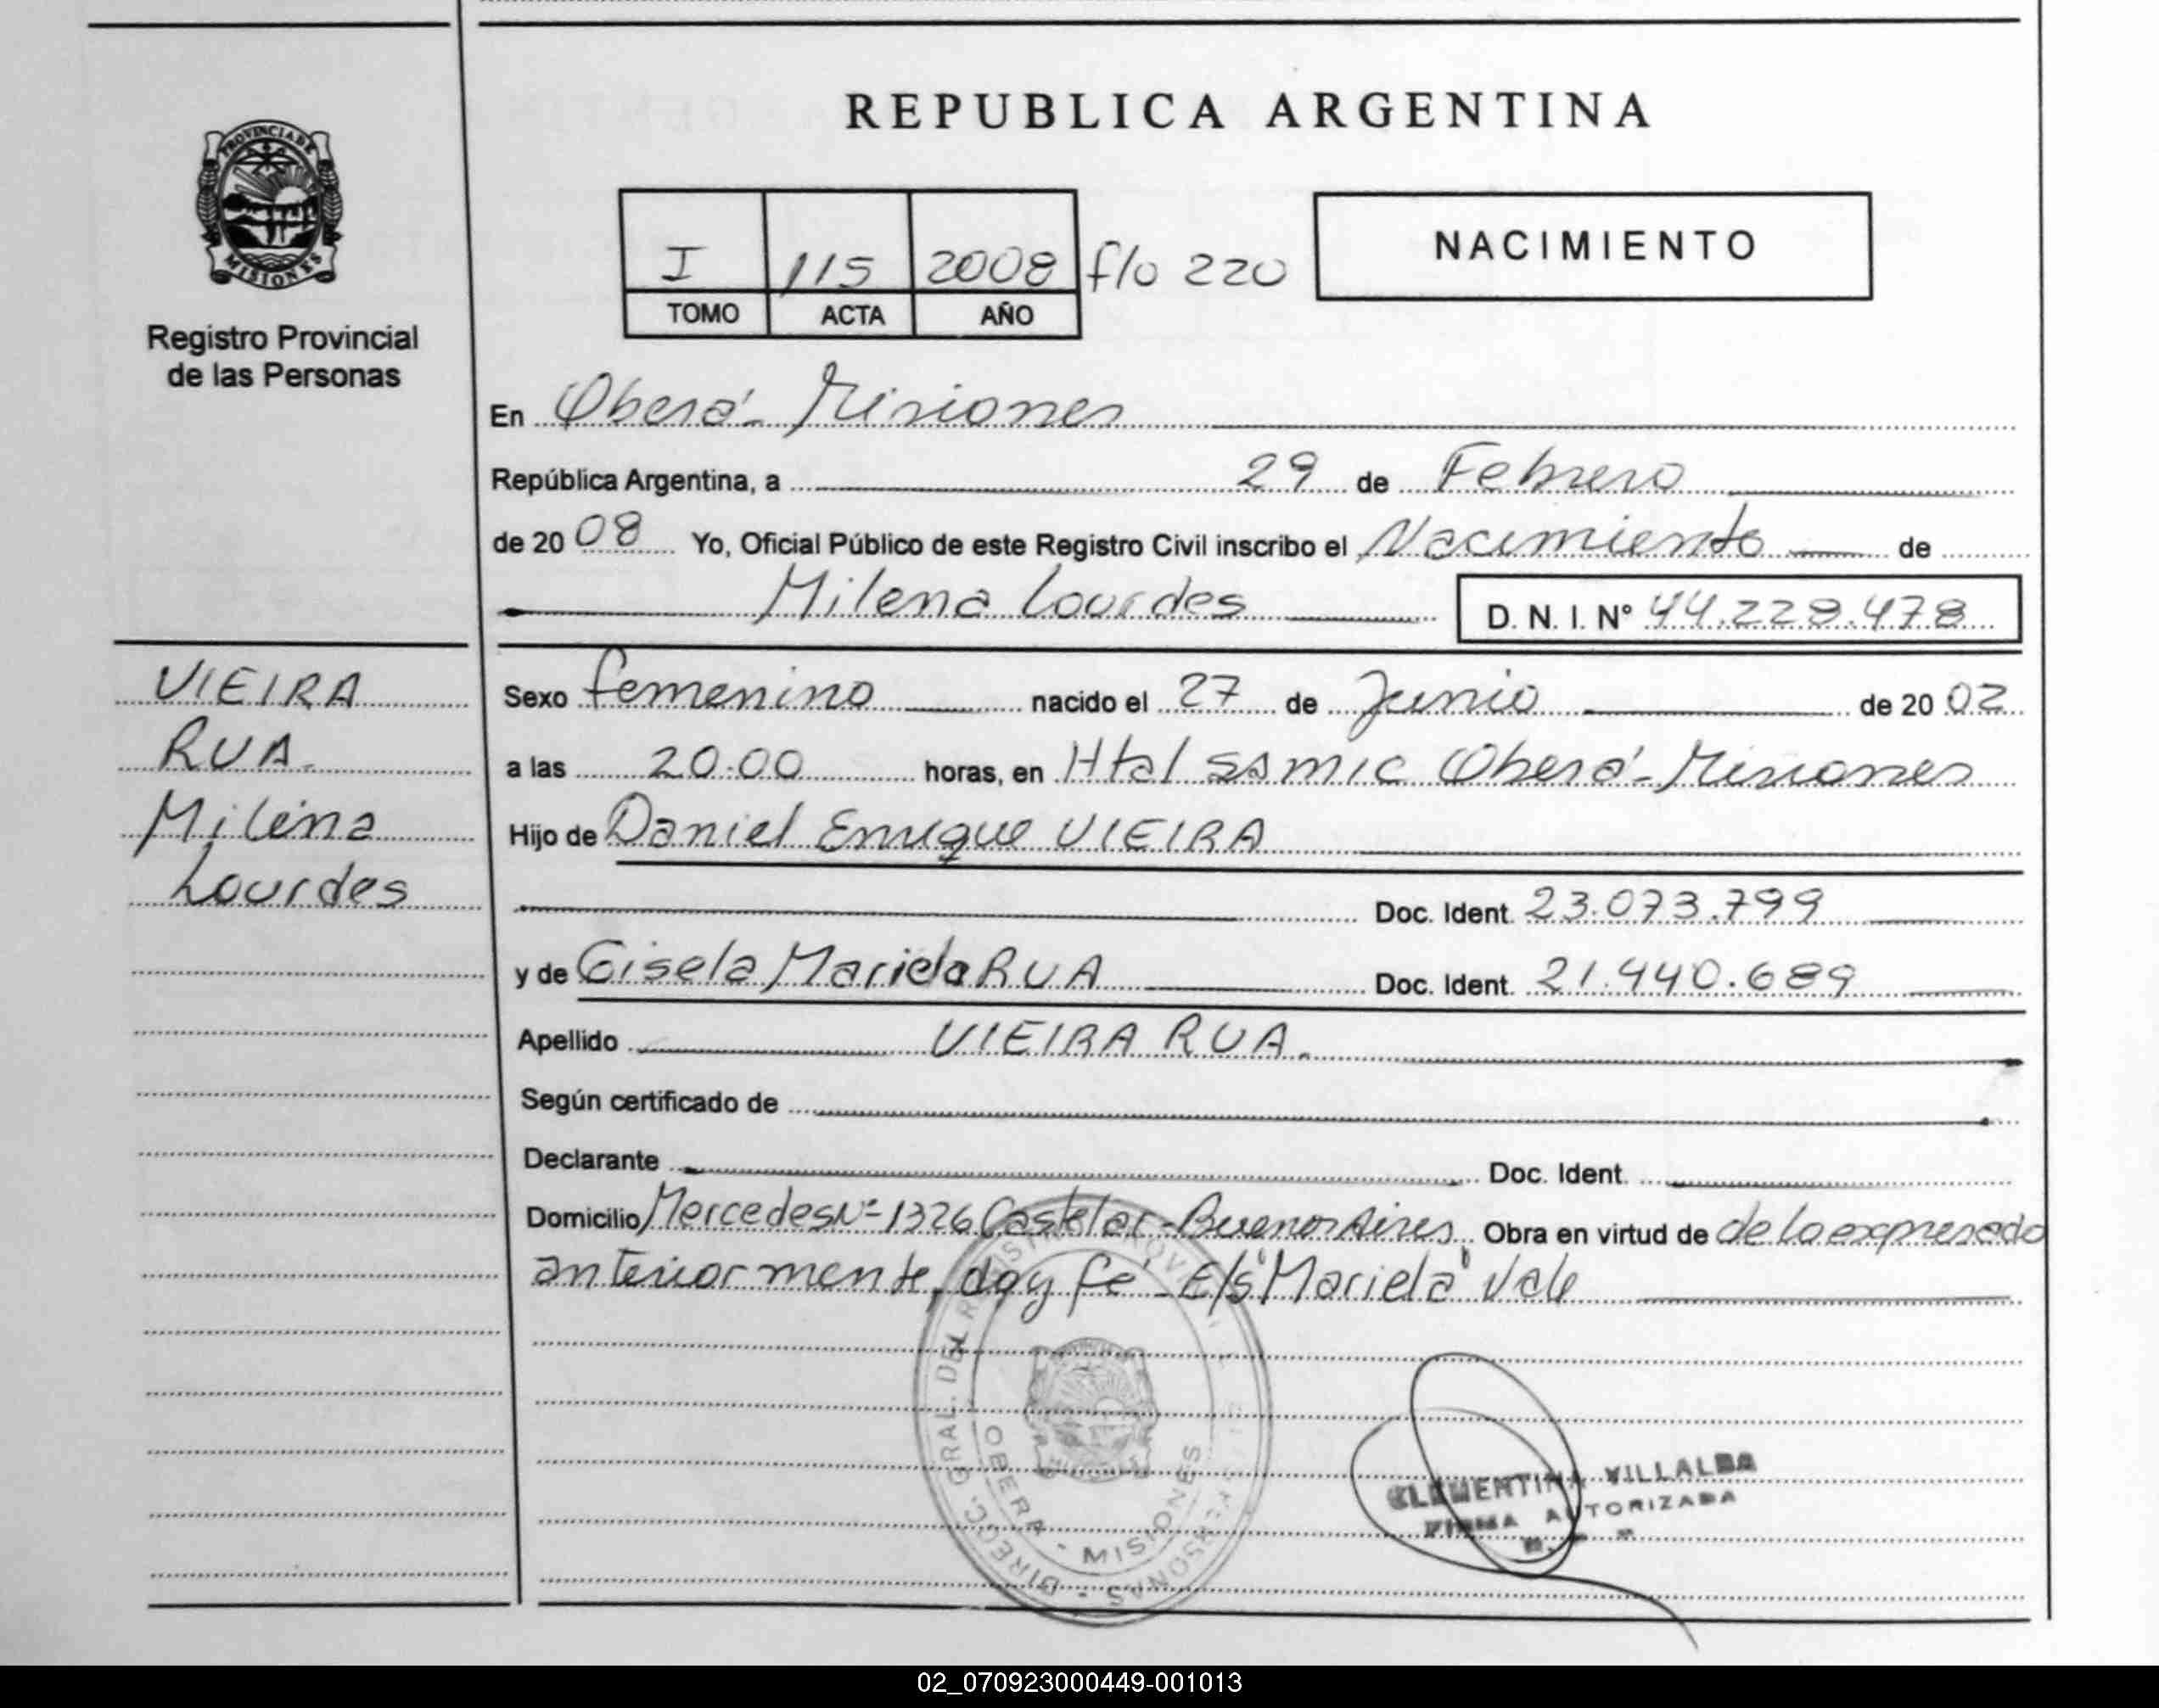 REPUBLICA ARGENTINA
PROVINCIA DE
MISIONES
Registro Provincial
de las Personas
I 115 2008 f/o 220
TOMO ACTA AÑO
NACIMIENTO
En Oberá - Misiones
República Argentina, a 29 de Febrero
de 20 08 Yo, Oficial Público de este Registro Civil inscribo el Nacimiento de
Milena Lourdes D. N. I. Nº 44.228.478
VIEIRA
RUA.
Milena
Lourdes
Sexo femenino nacido el 27 de Junio de 20 02
a las 20.00 horas, en Htal SSMIC Oberá - Misiones
Hijo de Daniel Enrique VIEIRA
Doc. Ident. 23.073.799
y de Gisela Mariela RUA Doc. Ident. 21.440.689
Apellido VIEIRA RUA.
Según certificado de
Declarante Doc. Ident.
Domicilio Mercedes Nº 1326 Castelar - Buenos Aires Obra en virtud de de lo expresado
anteriormente, doy fé - E/s "Mariela" Vale
DIRECC. GRAL. DEL REGISTRO PROVINCIAL DE LAS PERSONAS
OBERA - MISIONES
CLEMENTINA VILLALBA
FIRMA AUTORIZADA
02_070923000449-001013